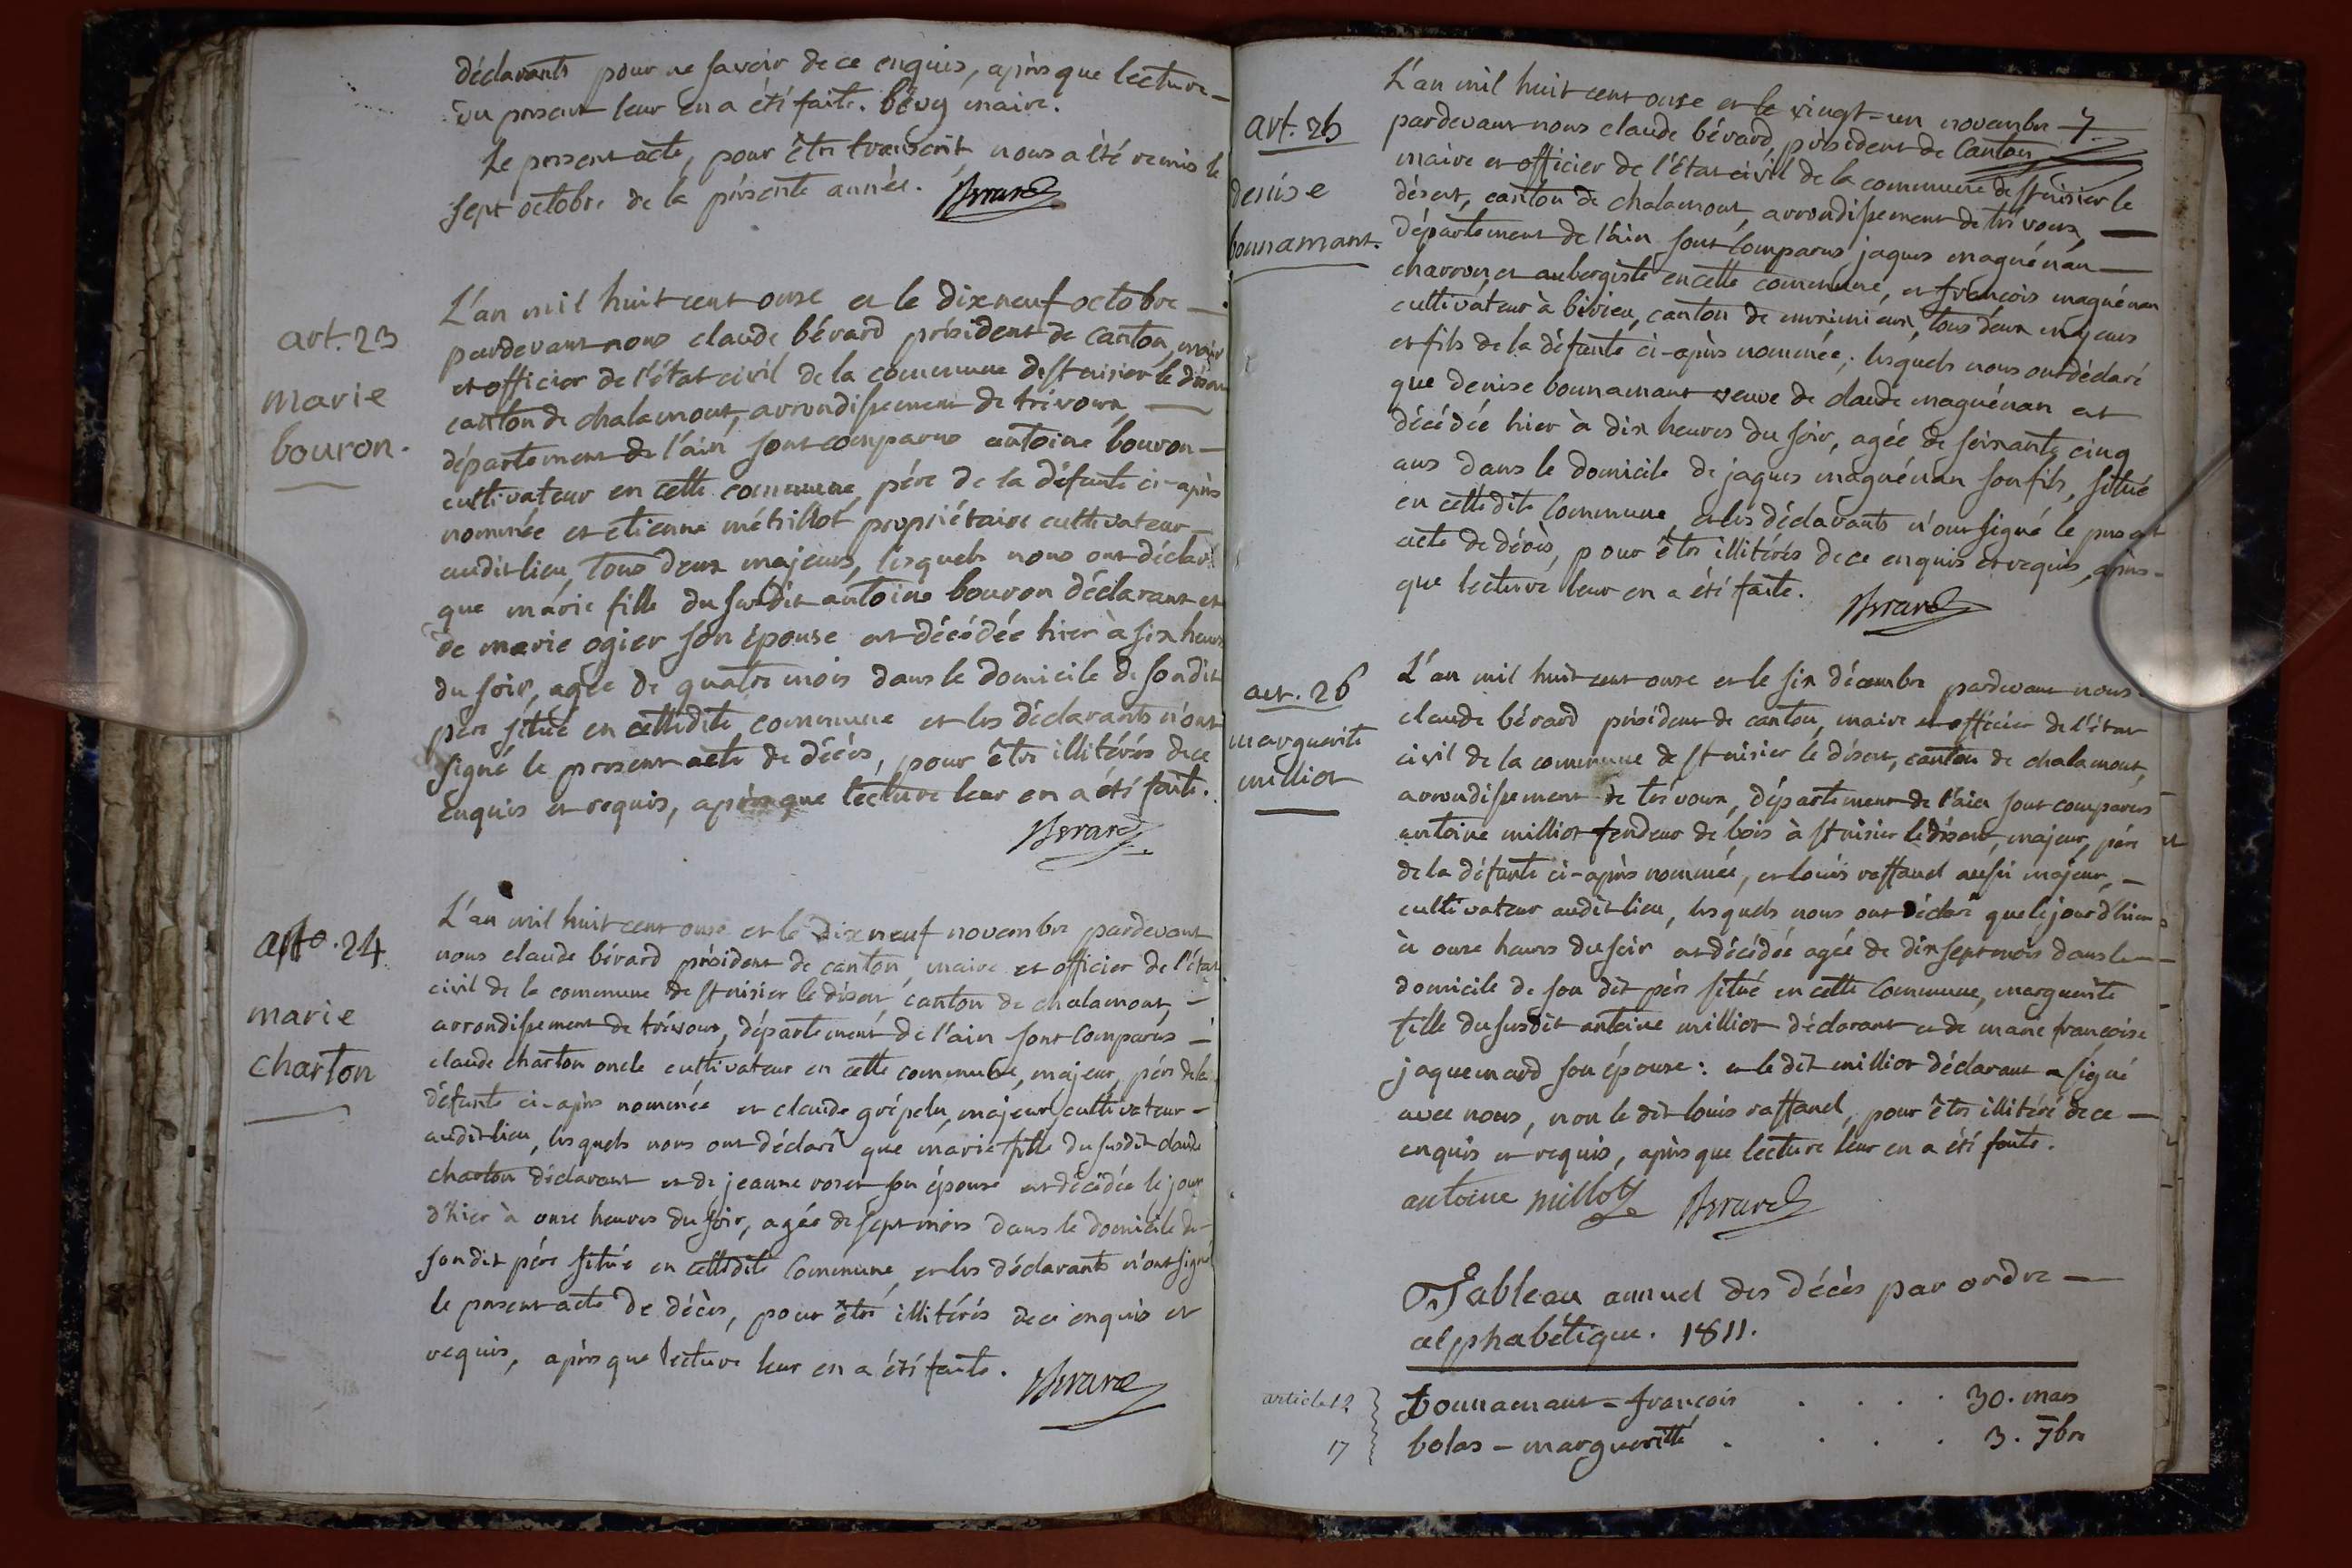 déclarants pour ne savoir de ce enquis, après que lecture
du present leur en a été faite. bévy maire.
Le present acte, pour être transcrit, nous a été remis le
sept octobre de la présente année. Bérard
art. 23
marie
bouron.
L'an mil huit cent onze et le dix neuf octobre
pardevant nous claude bérard président de canton, maire
et officier de l'état civil de la commune de st nisier le désert
canton de chalamont, arrondissement de trévoux,
département de l'ain sont comparus antoine bouron
cultivateur en cette commune, pére de la défunte ci-après
nommée et etienne métrillot propriétaire cultivateur
audit lieu, tous deux majeurs, lesquels nous ont déclaré
que marie fille du susdit antoine bouron déclarant et
de marie ogier son épouse est décédée hier à six heures
du soir, agée de quatre mois dans le domicile de sondit
pére situé en cettedite commune et les déclarants n'ont
signé le present acte de décès, pour être illitérés de ce
enquis et requis, après que lécture leur en a été faite.
Bérard
arto. 24
marie
charton
L'an mil huit cent onze et le dix neuf novembre pardevant
nous claude bérard président de canton, maire et officier de l'état
civil de la commune de st nisier le désert, canton de chalamont,
arrondissement de trévoux, département de l'ain sont comparus
claude charton oncle cultivateur en cette commune, majeur, pére de la
défunte ci-après nommée et claude grépelu, majeur, cultivateur
audit lieu, lesquels nous ont déclaré que marie fille du susdit claude
charton déclarant et de jeanne roset son épouse est décédée le jour
d'hier à onze heures du soir, agée de sept mois dans le domicile de
son dit pére situé en cettedite commune, et les déclarants n'ont signé
le present acte de décès, pour être illitérés de ce enquis et
requis, après que lecture leur en a été faite. Bérard
7.
art. 25
denise
bounamant.
L'an mil huit cent onze et le vingt-un novembre
pardevant nous claude bérard, président de canton
maire et officier de l'état civil de la commune de st nisier le
désert, canton de chalamont, arrondissement de trévoux,
département de l'ain sont comparus jaques maguénan
charron et aubergiste en cette commune, et françois maguénan
cultivateur à birieu, canton de meximieux, tous deux majeurs
et fils de la défunte ci-après nommée; lesquels nous ont déclaré
que denise bounamant veuve de claude maguénan est
décédée hier à dix heures du soir, agée de soixante cinq
ans dans le domicile de jaques maguénan son fils, situé
en cettedite commune, et les déclarants n'ont signé le present
acte de décès, pour être illitérés de ce enquis et requis, après
que lecture leur en a été faite. Bérard
art. 26
marguerite
milliot
L'an mil huit cent onze et le six décembre pardevant nous
claude bérard président de canton, maire et officier de l'état
civil de la commune de st nisier le désert, canton de chalamont,
arrondissement de trévoux, département de l'ain sont comparus
antoine milliot fendeur de bois à st nisier le désert, majeur, pére
de la défunte ci-après nommée, et louis raffaud aussi majeur,
cultivateur audit lieu, lesquels nous ont déclaré que le jour d'hier
à onze heures du soir est décédée agée de dix sept mois dans le
domicile de son dit pére situé en cette commune, marguerite
fille du susdit antoine milliot déclarant et de marie françoise
jaquemard son épouse: et le dit milliot déclarant a signé
avec nous, non le dit louis raffaud, pour être illitéré de ce
enquis et requis, après que lecture leur en a été faite.
antoine milloty Bérard
Tableau annuel des décès par ordre
alphabétique. 1811.
article 12 bounamant = françois . . . . 30. mars
17 bolas - marguerite . . . . 3. 7bre